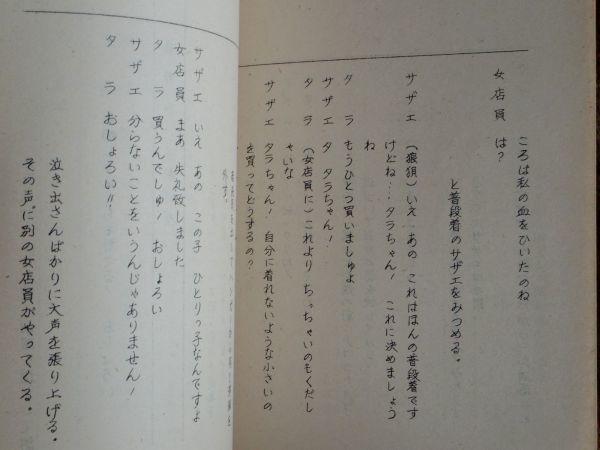 ころは私の血をひいたのね
女店員　は？
と普段着のサザエをみつめる。
サザエ　（狼狽）いえ、あの、これはほんの普段着です
けどね…タラちゃん！　これに決めましょう
ね
タラ　もうひとつ買いましゅよ
サザエ　タ　タラちゃん！
タラ　（女店員に）これより　ちっちゃいのもくだし
ゃいな
サザエ　タラちゃん！　自分に着れないような小さいの
を買ってどうするの？
サザエ　いえ　あの　この子　ひとりっ子なんですよ
女店員　まあ　失礼致しました
タラ　買うんでしゅ！　おしょろい
サザエ　分らないことをいうんじゃありません！
タラ　おしょろい!!
泣き出さんばかりに大声を張り上げる。
その声に別の女店員がやってくる。